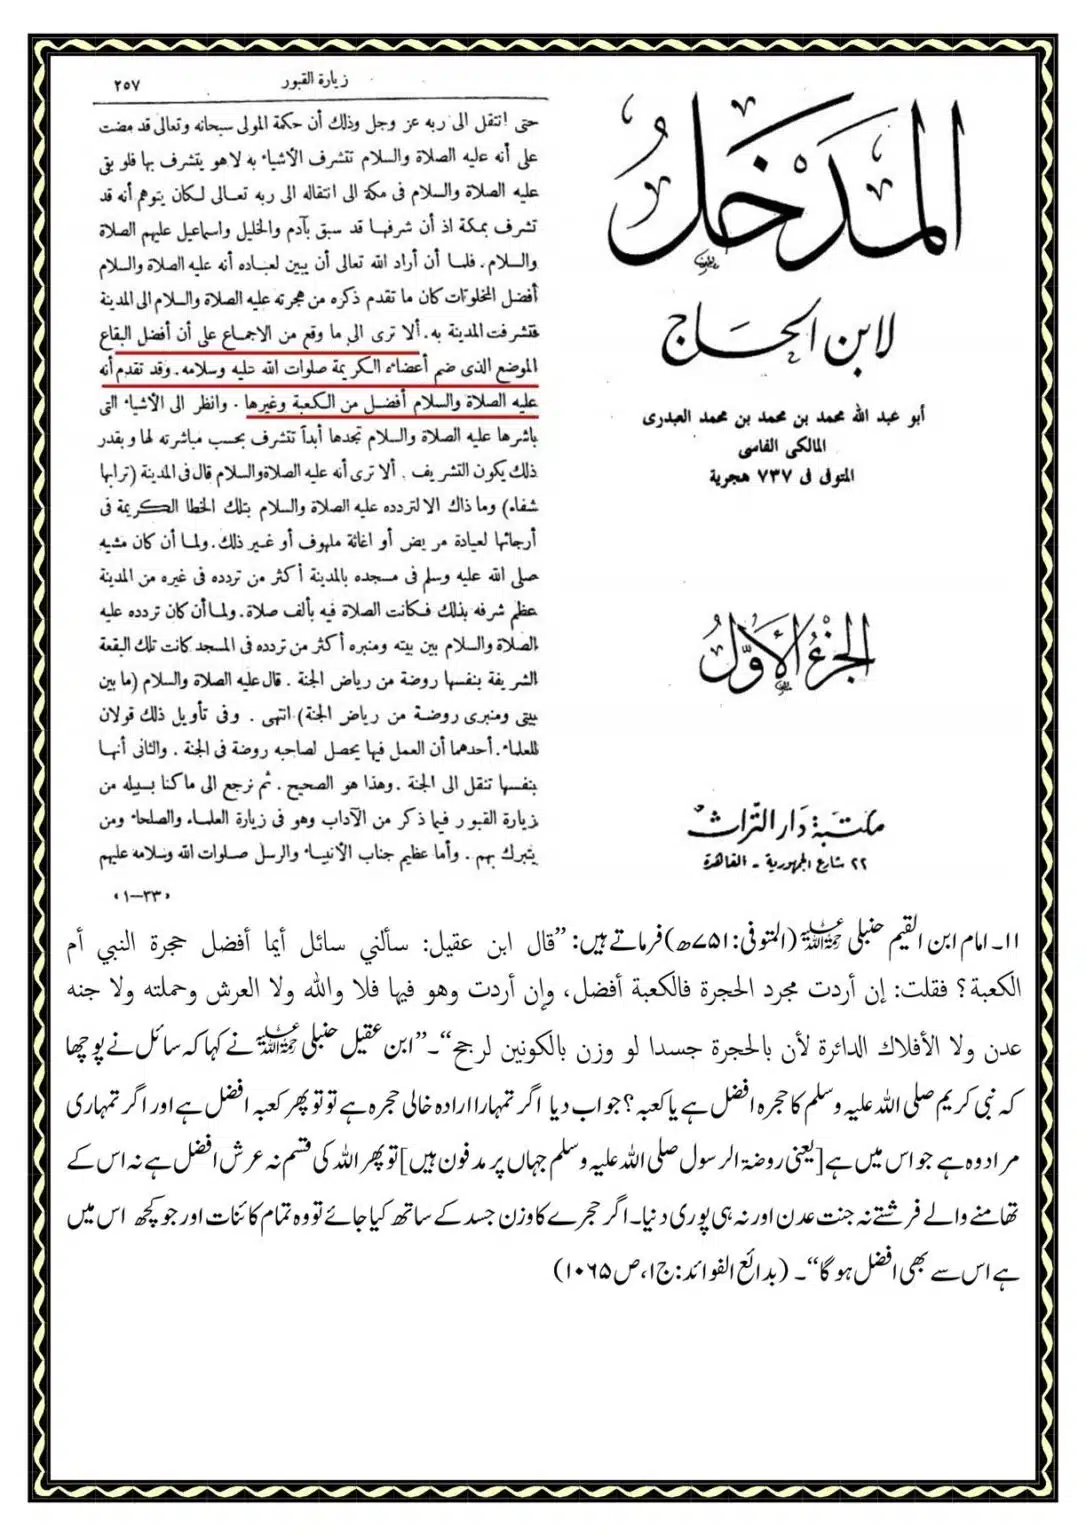 زيارة القبور ٢٥٧
حتى انتقل الى ربه عز وجل وذلك أن حكمة المولى سبحانه وتعالى قد مضت
على أنه عليه الصلاة والسلام تتشرف الأشياء به لاهو يتشرف بها فلو بقى
عليه الصلاة والسلام فى مكة الى انتقاله الى ربه تعالى لكان يتوهم أنه قد
تشرف بمكة اذ أن شرفها قد سبق بآدم والخليل واسماعيل عليهم الصلاة
والسلام . فلما أن أراد الله تعالى أن يبين لعباده أنه عليه الصلاة والسلام
أفضل المخلوقات كان ما تقدم ذكره من هجرته عليه الصلاة والسلام الى المدينة
فتشرفت المدينة به . ألا ترى الى ما وقع من الاجماع على أن أفضل البقاع
الموضع الذى ضم أعضاءه الكريمة صلوات الله عليه وسلامه . وقد تقدم أنه
عليه الصلاة والسلام أفضل من الكعبة وغيرها . وانظر الى الأشياء التى
باشرها عليه الصلاة والسلام تجدها أبداً تتشرف بحسب مباشرته لها وبقدر
ذلك يكون التشريف . ألا ترى أنه عليه الصلاة والسلام قال فى المدينة (ترابها
شفاء) وما ذاك الا لتردده عليه الصلاة والسلام بتلك الخطا الكريمة فى
أرجائها لعيادة مريض أو اغاثة ملهوف أو غير ذلك . ولما أن كان مشيه
صلى الله عليه وسلم فى مسجده بالمدينة أكثر من تردده فى غيره من المدينة
عظم شرفه بذلك فكانت الصلاة فيه بألف صلاة . ولما أن كان تردده عليه
الصلاة والسلام بين بيته ومنبره أكثر من تردده فى المسجد كانت تلك البقعة
الشريفة بنفسها روضة من رياض الجنة . قال عليه الصلاة والسلام (ما بين
بيتى ومنبرى روضة من رياض الجنة) انتهى . وفى تأويل ذلك قولان
للعلماء . أحدهما أن العمل فيها يحصل لصاحبه روضة فى الجنة . والثانى أنها
بنفسها تنقل الى الجنة . وهذا هو الصحيح . ثم نرجع الى ماكنا بسبيله من
زيارة القبور فيما ذكر من الآداب وهو فى زيارة العلماء والصلحاء ومن
يتبرك بهم . وأما عظيم جناب الأنبياء والرسل صلوات الله وسلامه عليهم
«٣٣-١»
المدخل
لابن الحاج
أبو عبد الله محمد بن محمد بن محمد العبدرى
المالكى الفاسى
المتوفى فى ٧٣٧ هجرية
الجزء الأول
مكتبة دار التراث
٢٢ شارع الجمهورية - القاهرة
۱۱۔ امام ابن القیم حنبلی رحمۃ اللہ علیہ (المتوفی: ۷۵۱ھ) فرماتے ہیں: ”قال ابن عقيل: سألني سائل أيما أفضل حجرة النبي أم
الكعبة؟ فقلت: إن أردت مجرد الحجرة فالكعبة أفضل، وإن أردت وهو فيها فلا والله ولا العرش وحملته ولا جنه
عدن ولا الأفلاك الدائرة لأن بالحجرة جسدا لو وزن بالكونين لرجح“۔ ”ابن عقیل حنبلی رحمۃ اللہ علیہ نے کہا کہ سائل نے پوچھا
کہ نبی کریم صلی اللہ علیہ وسلم کا حجرہ افضل ہے یا کعبہ؟ جواب دیا اگر تمہارا ارادہ خالی حجرہ ہے تو تو پھر کعبہ افضل ہے اور اگر تمہاری
مراد وہ ہے جو اس میں ہے [یعنی روضۃ الرسول صلی اللہ علیہ وسلم جہاں پر مدفون ہیں] تو پھر اللہ کی قسم نہ عرش افضل ہے نہ اس کے
تھامنے والے فرشتے نہ جنت عدن اور نہ ہی پوری دنیا۔ اگر حجرے کا وزن جسد کے ساتھ کیا جائے تو وہ تمام کائنات اور جو کچھ اس میں
ہے اس سے بھی افضل ہو گا“۔ (بدائع الفوائد: ج۱، ص۱۰۶۵)